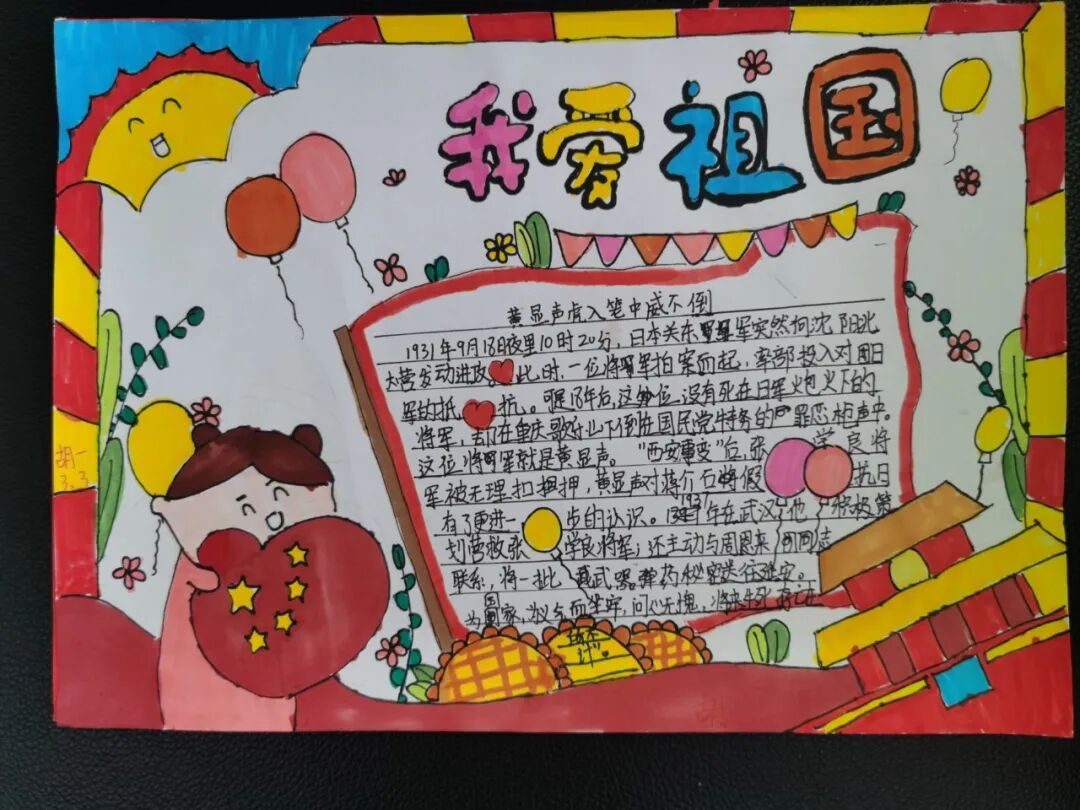 我爱祖国
黄显声虎入笔中威不倒
1931年9月18日夜里10时20分,日本关东军突然向沈阳北
大营发动进攻。此时,一位将军拍案而起,率部投入对日
军的抵抗。可是18年后,这位没有死在日军炮火下的
将军,却在重庆歌乐山下倒在国民党特务的罪恶枪声中。
这位将军就是黄显声。"西安事变"后,张学良将
军被无理扣押,黄显声对蒋介石将假抗日
有了更进一步的认识。1937年在武汉,他积极策
划营救张学良将军;还主动与周恩来同志
联系,将一批武器弹药秘密送往延安。
为国家,义与而坐牢,问心无愧,
胡一
3.3